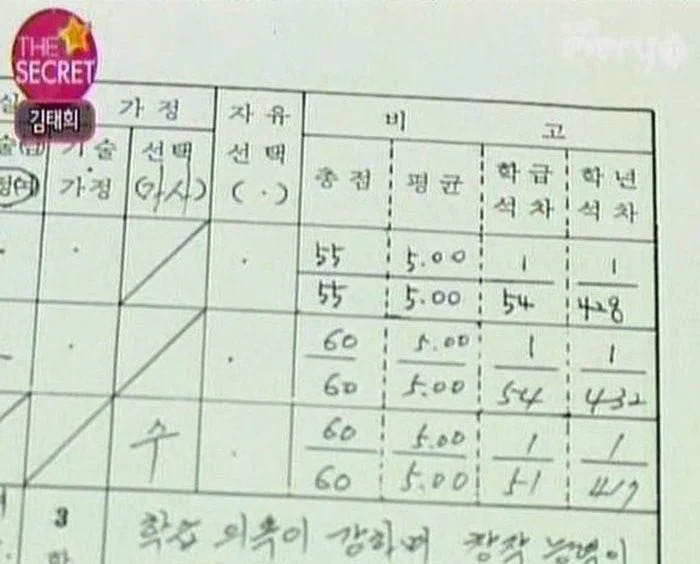 THE
SECRET
김태희
가 정
자 유
비 고
기 술
선택
선 택
총 점
평 균
학 급
학 년
가정
(가사)
( . )
석 차
석 차
55 5.00 1 1
55 5.00 54 428
60 5.00 1 1
60 5.00 54 432
수
60 5.00 1 1
60 5.00 51 417
3
학습 의욕이 강하며 창작 능력이
학